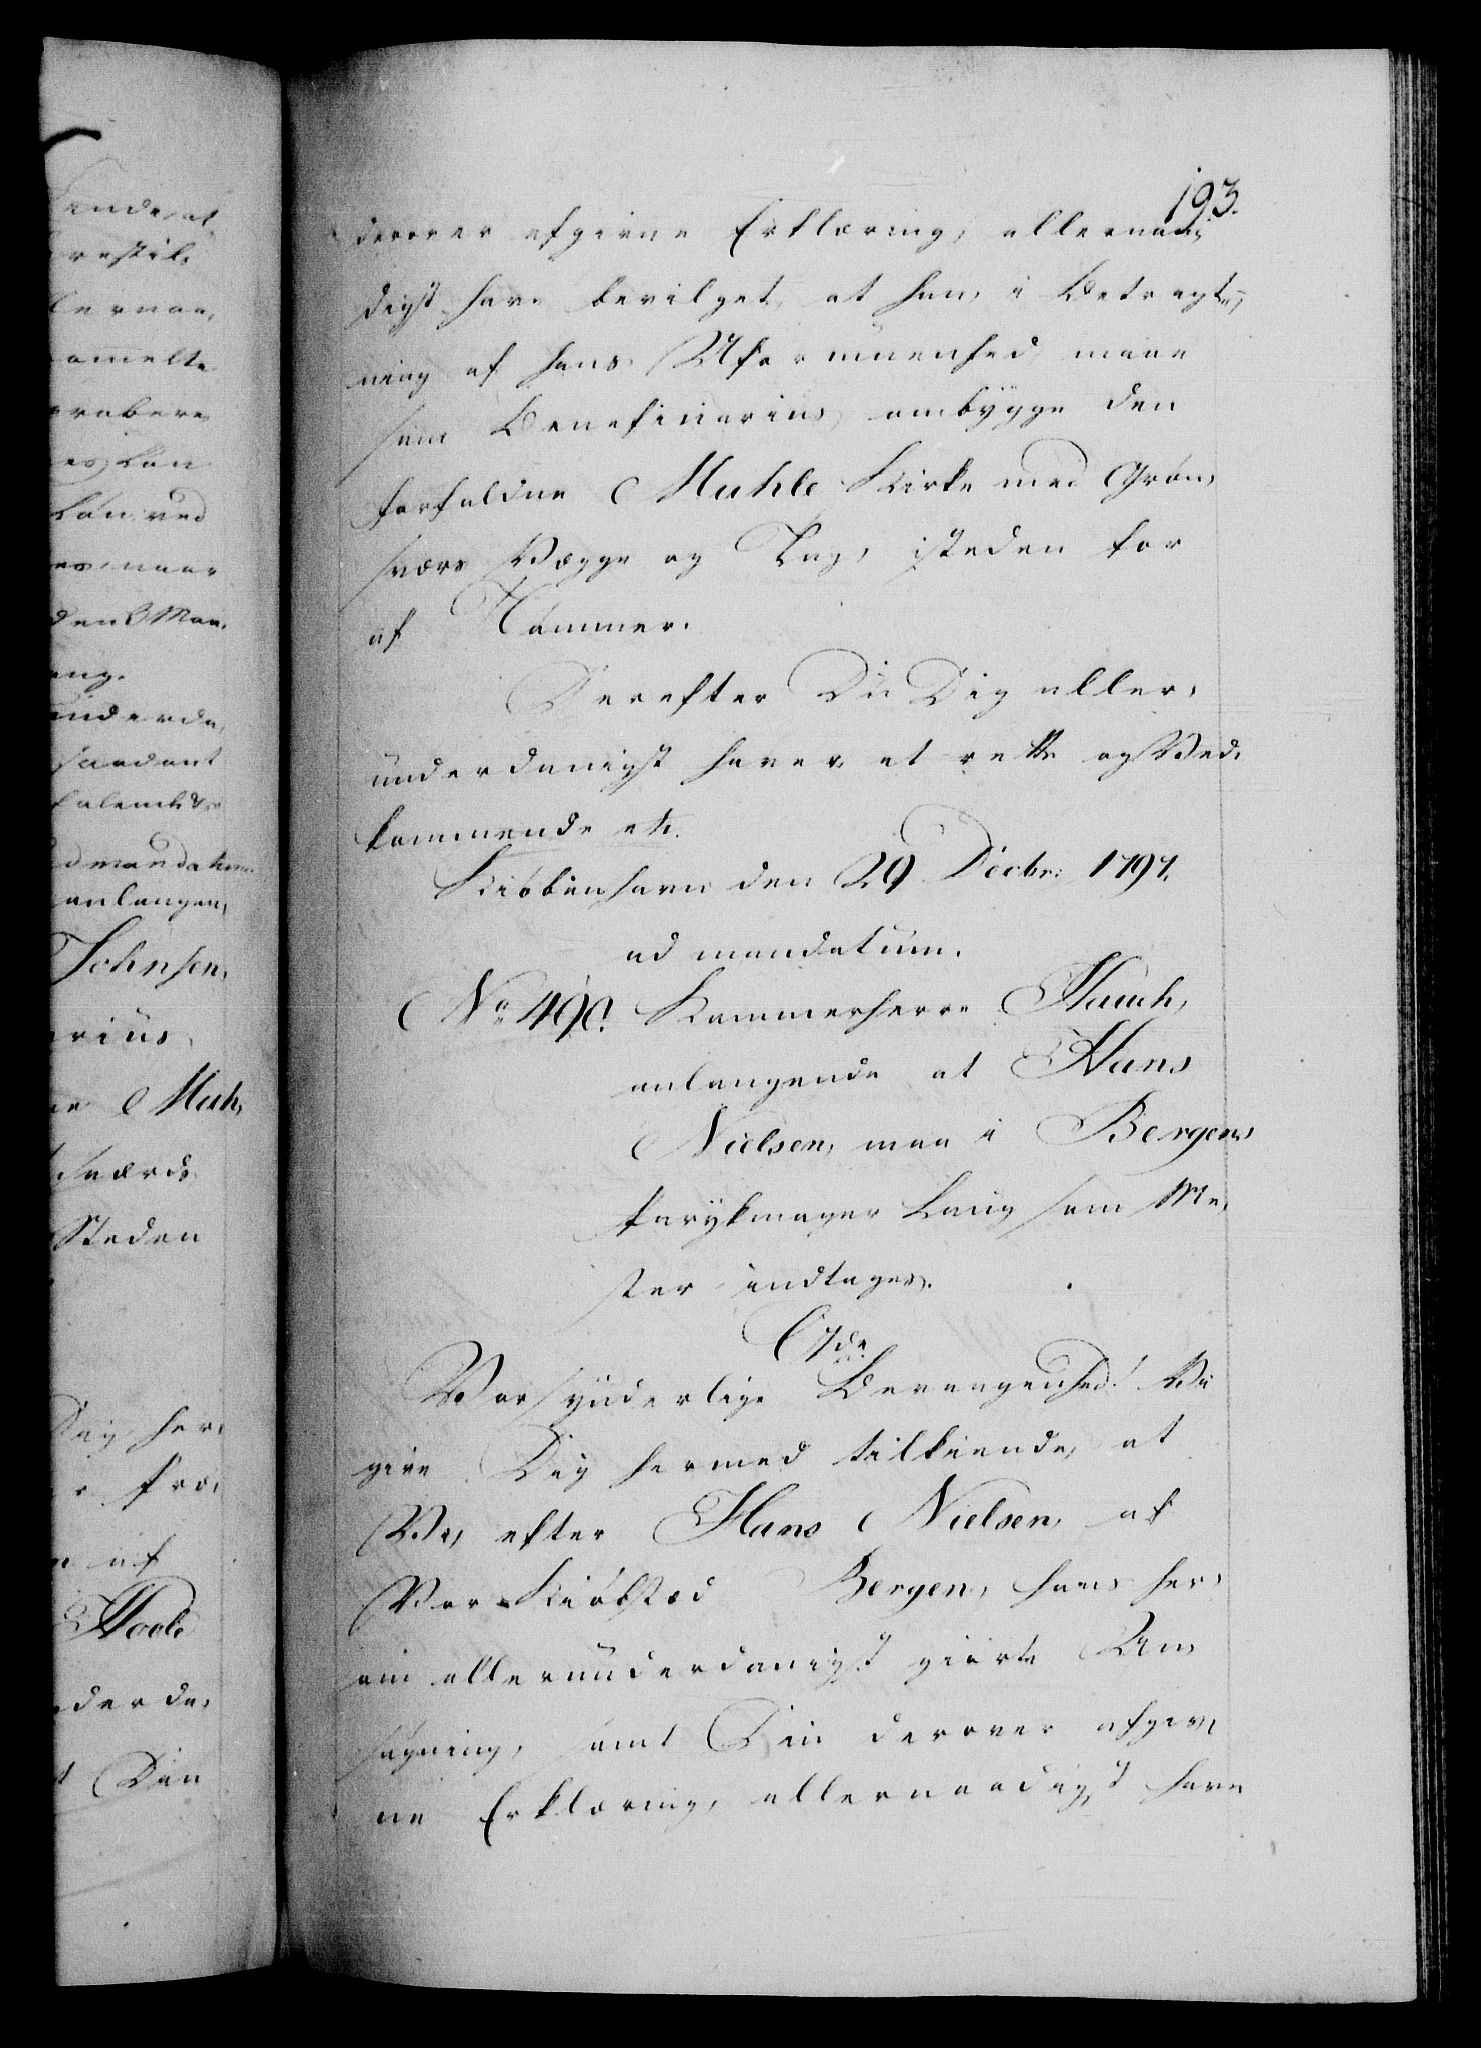 193.
derover afgivne Erklæring, allernaa,
digst have bevilget, at han, i Betragt,
ning af hans Uformuenhed, maae
som Beneficiarius, ombygge den
forfaldne Muhle Kirke med Grøn,
sværs Vægge og Tag, isteden for
af Tømmer.
Derefter Du Dig aller,
underdanigst haver at rette og Ved,
kommende etc.
Kiøbenhavn den 29 Decbr: 1797.
ad mandatum.
No 490. Kammerherre Hauch,
anlangende at Hans
Nielsen, maa i Bergens
Parykmager Laug som Me,
ster indtages.
C 7de
Vor synderlige Bevaagenhed! Vi
give Dig hermed tilkiende, at
Vi, efter Hans Nielsen, af
Vor Kiøbstæd Bergen, hans her,
om allerunderdanigst giorte An,
søgning, samt Din derover afgiv,
ne Erklæring, allernaadigst have